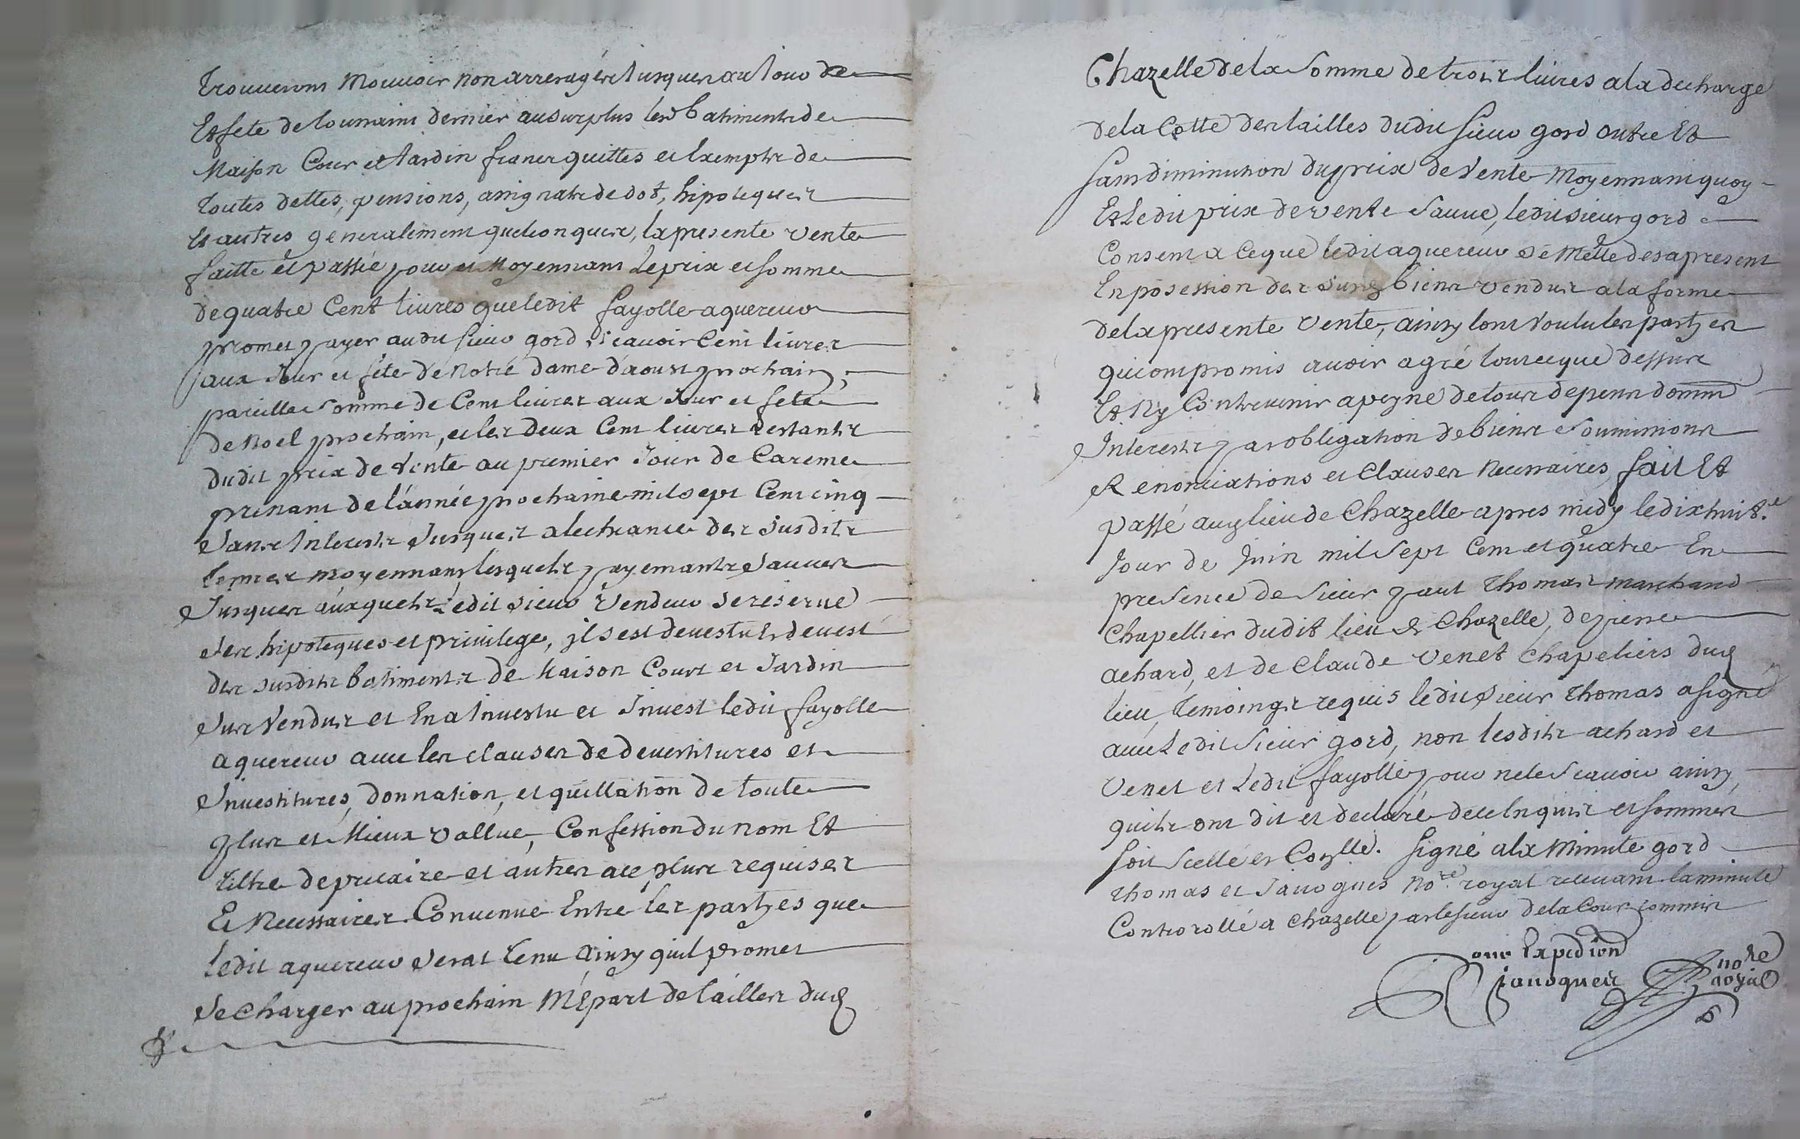 trouveront mouvoir non arreragés jusques au jour de
Et fete de toussaint dernier au surplus lesd batiments de
Maison Cour et Jardin francs quittes et Exempts de
toutes dettes, pensions, assignats de dot, hipoteques
Et autres generalement quelconques, la presente vente
faitte et passée pour et Moyennant Le prix et somme
de quatre Cent livres que ledit fayolle aquereur
promet payer audit sieur gord scavoir Cent livres
aux Jour et fete de Notre dame d'aoust prochain,
pareille somme de Cent livres aux Jour et fete
de Noel prochain, et les deux Cent livres restants
dudit prix de vente au premier Jour de Careme
prenant de l'année prochaine mil sept Cent cinq
sans Interests Jusques a lecheance des susdits
termes moyennant lesquels payemants sauves
Jusques auxquels Ledit sieur Vendeur se reserve
ses hipoteques et privilege, il s'est devestu et devest
des susdits batiments de Maison Court et Jardin
sus vendus et En a Investu et Invest ledit fayolle
aquereur avec les clauses de devestitures et
Investitures, donnation, et quittation de toute
plus et Mieux vallue, Confession du nom Et
tiltre de precaire et autres a ce plus requises
Et Necessaires Convenue Entre les partyes que
ledit aquereur serat tenu ainsy qu'il promet
se charger au prochain Mépart de tailles dud
Chazelle de la somme de trois livres a la decharge
de la Cotte des tailles dudit sieur gord outre Et
sans diminution du prix de vente Moyennant quoy
Et Ledit prix de vente sauve, ledit sieur gord
Consent a Ceque ledit aquereur se Mette des a present
En possession des susd biens vendus a la forme
de la presente vente, ainsy lont voulu les partyes
qui ont promis avoir agré tout ceque dessus
Et Ny Contrevenir a peyne de tous depens domm
Interests par obligation de biens soumimons
Renonciations et Clauses Necessaires, fait Et
passé aud lieu de Chazelle apres midy le dix huit.e
Jour de Juin mil sept Cent et quatre En
presence de sieur paul Thomas marchand
Chapellier dudit lieu de Chazelle, de pierre
achard, et de Claude venet Chapeliers dud
lieu, temoings requis ledit sieur thomas a signé
avec Ledit sieur gord, non lesdits achard et
venet et Ledit fayolle pour ne le scavoir ainsy
quils ont dit et declaré de ce Enquis et sommes
soit scellé et Cont.llé. signé a la Minute gord
thomas et Janogues no.re royal recevant la minute
Controrollé a chazelle par le sieur de la Cour commis
pour Expedion
Janogues no.re royal